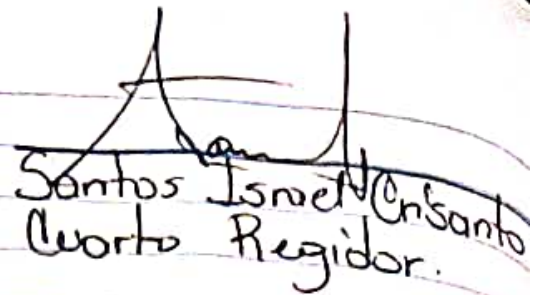 Santos Ismael Crisanto
Cuarto Regidor.